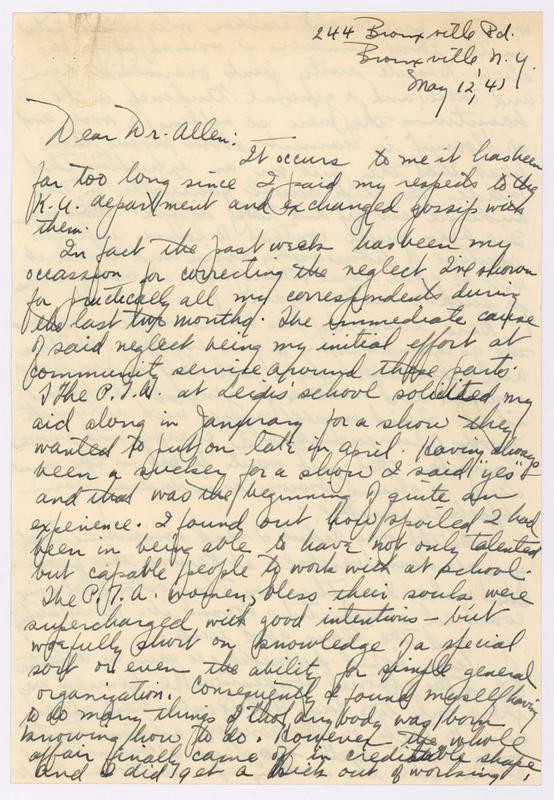 244 Bronxville Rd.
Bronxville N.Y.
May 12, '41
Dear Dr. Allen:
It occurs to me it has been
far too long since I paid my respects to the
K.U. department and exchanged gossip with
them.
In fact the past week has been my
occassion for correcting the neglect I've shown
for practically all my correspondents during
the last two months. The immediate cause
of said neglect being my initial effort at
community service around these parts.
The P.T.A. at Leigis' school solicited my
aid along in January for a show they
wanted to put on late in April. Having always
been a sucker for a show I said "yes"
and that was the beginning of quite an
experience. I found out how spoiled I had
been in being able to have not only talented
but capable people to work with at school.
The P.T.A. women, bless their souls were
supercharged with good intentions – but
woefully short on knowledge of a special
sort or even the ability for simple general
organization. Consequently I found myself having
to do many things I thot anybody was born
knowing how to do. However the whole
affair finally came off in creditable shape,
and I did get a kick out of working